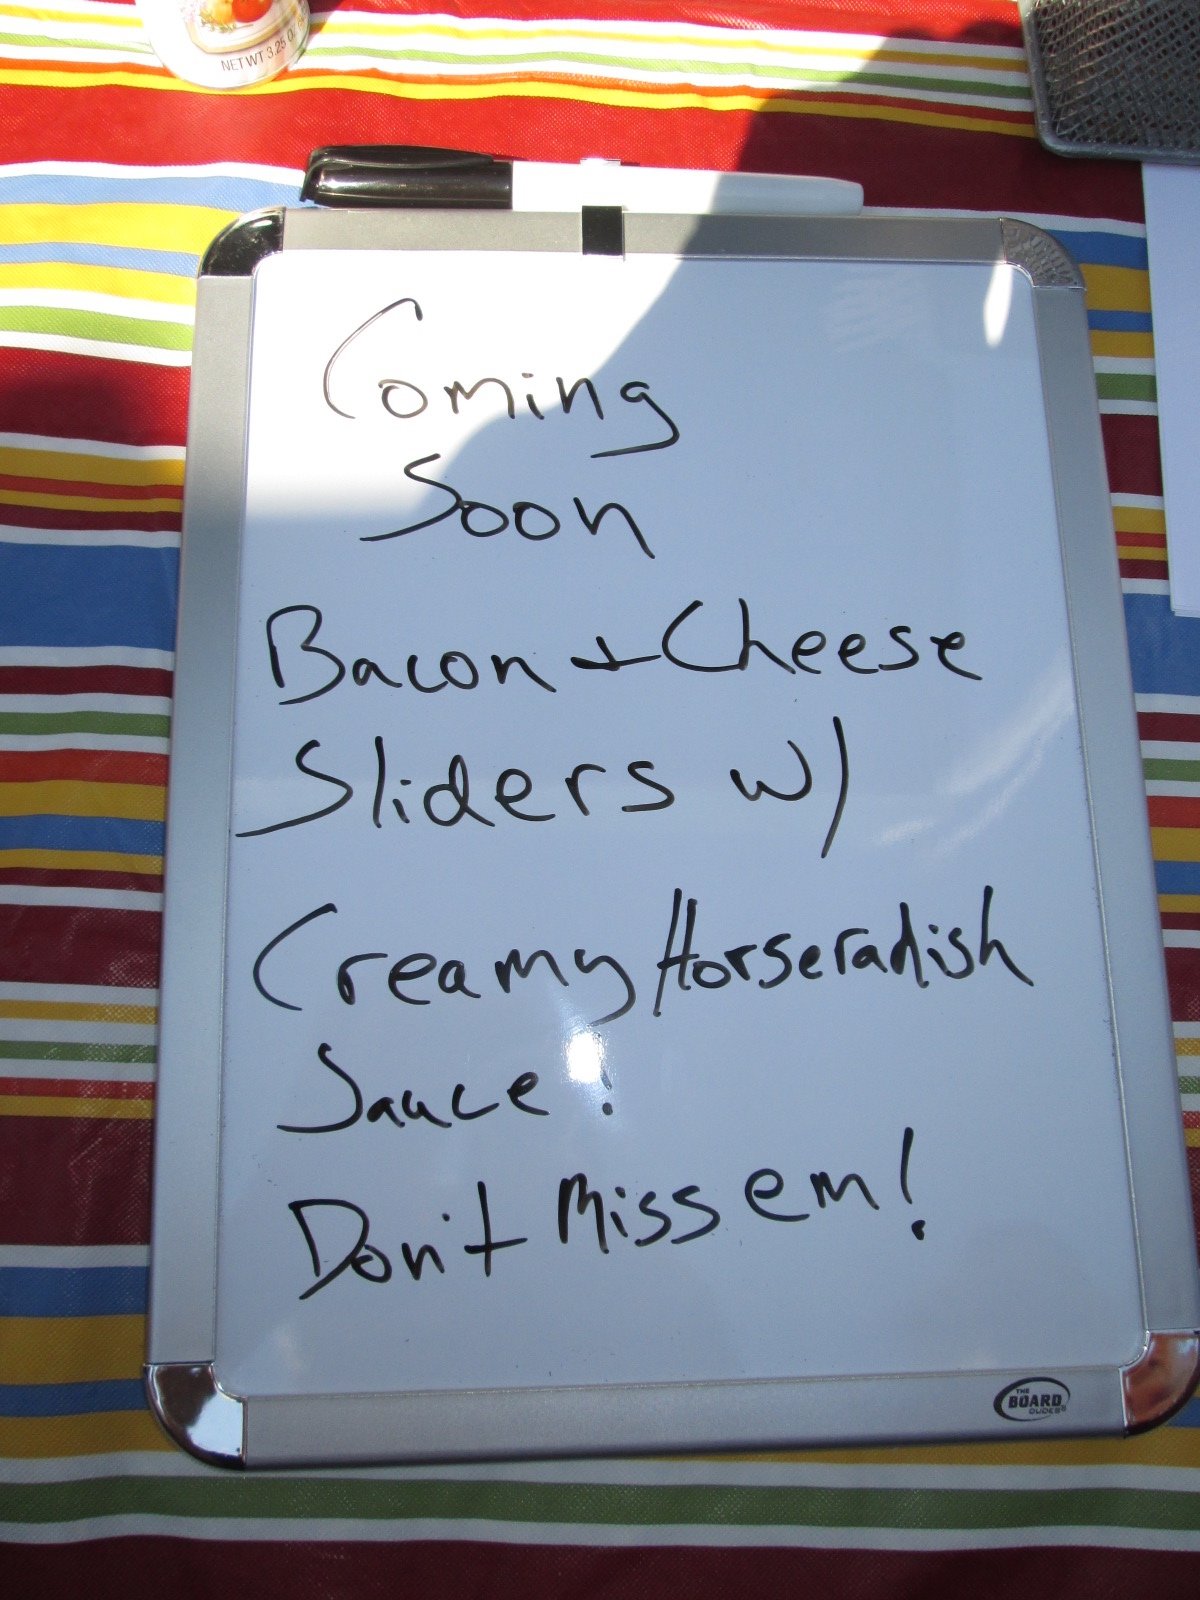 NET WT 3.25 O
Coming
Soon
Bacon + Cheese
Sliders w/
Creamy Horseradish
Sauce!
Don't Miss em!
THE
BOARD
DUDES